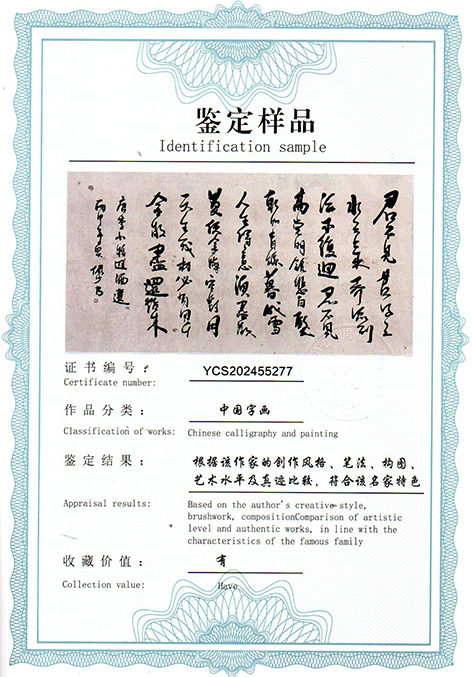 鉴定样品
Identification sample
君不見黄河之
水天上来奔流到
海不復迴君不見
高堂明鏡悲白髮
朝如青絲暮成雪
人生得意須盡歡
莫使金樽空對月
天生我材必有用千
金散盡還復来
证书编号：
YCS202455277
Certificate number:
作品分类：
中国字画
Classification of works: Chinese calligraphy and painting
鉴定结果：
根据该作家的创作风格、笔法、构图、
艺术水平及真迹比较，符合该名家特色
Appraisal results:
Based on the author's creative style,
brushwork, compositionComparison of artistic
level and authentic works, in line with the
characteristics of the famous family
收藏价值：
有
Collection value:
Have